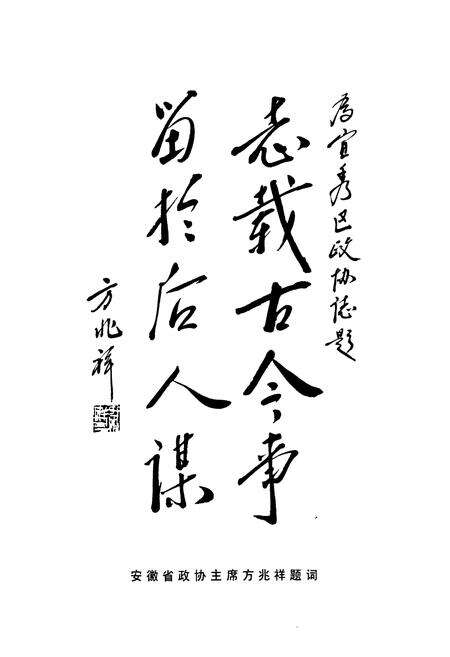 为宜秀区政协志题
志载古今事
留於后人谋
方兆祥
安徽省政协主席方兆祥题词